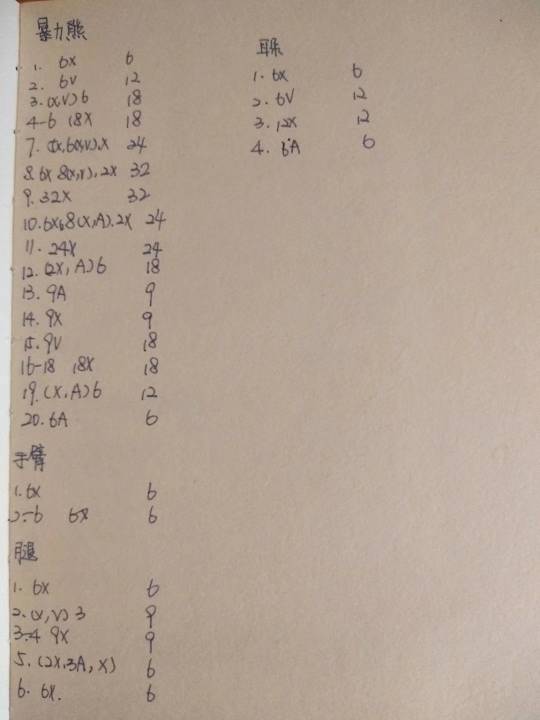 暴力熊
1. 6X 6
2. 6V 12
3. (X,V)6 18
4-6 18X 18
7. 5X,6(X,V),X 24
8. 6X 8(X,V),2X 32
9. 32X 32
10. 6X,8(X,A),2X 24
11. 24X 24
12. (2X,A)6 18
13. 9A 9
14. 9X 9
15. 9V 18
16-18 18X 18
19. (X,A)6 12
20. 6A 6
手臂
1. 6X 6
2-6 6X 6
腿
1. 6X 6
2. (X,V)3 9
3-4 9X 9
5. (2X,3A,X) 6
6. 6X. 6
耳朵
1. 6X 6
2. 6V 12
3. 12X 12
4. 6A 6